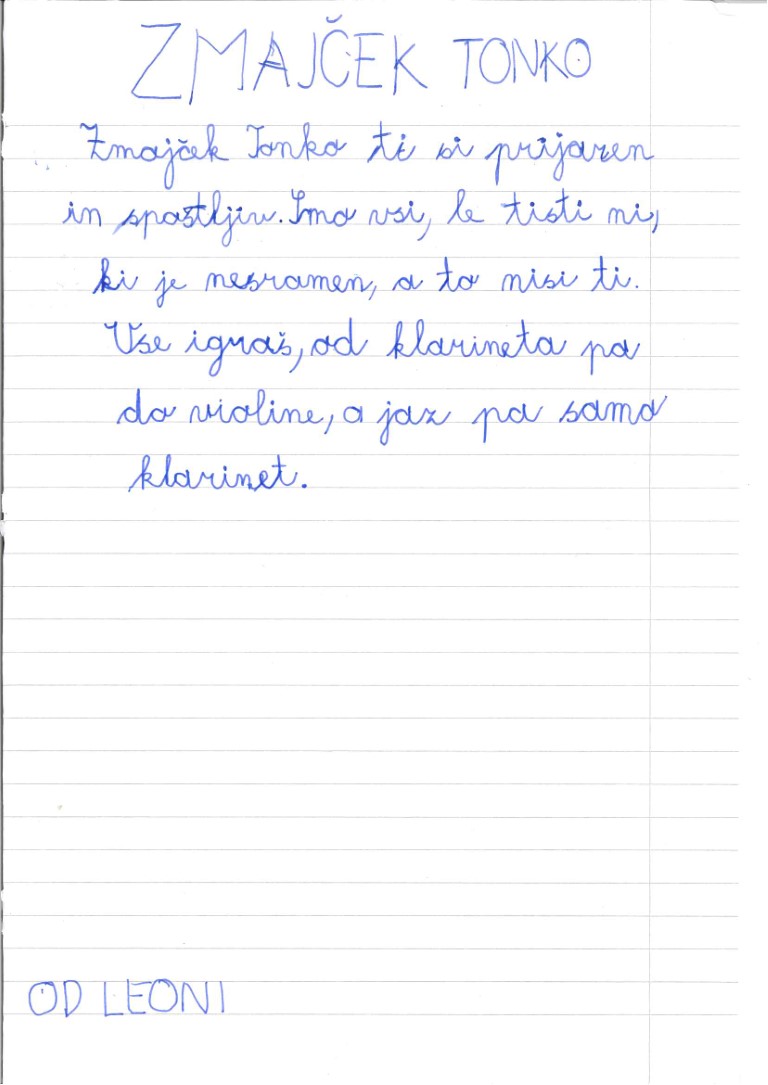 ZMAJČEK TONKO
Zmajček Tonko ti si prijazen
in spoštljiv. Smo vsi, le tisti ni,
ki je nesramen, a to nisi ti.
Vse igraš, od klarineta pa
do violine, a jaz pa samo
klarinet.
OD LEONI